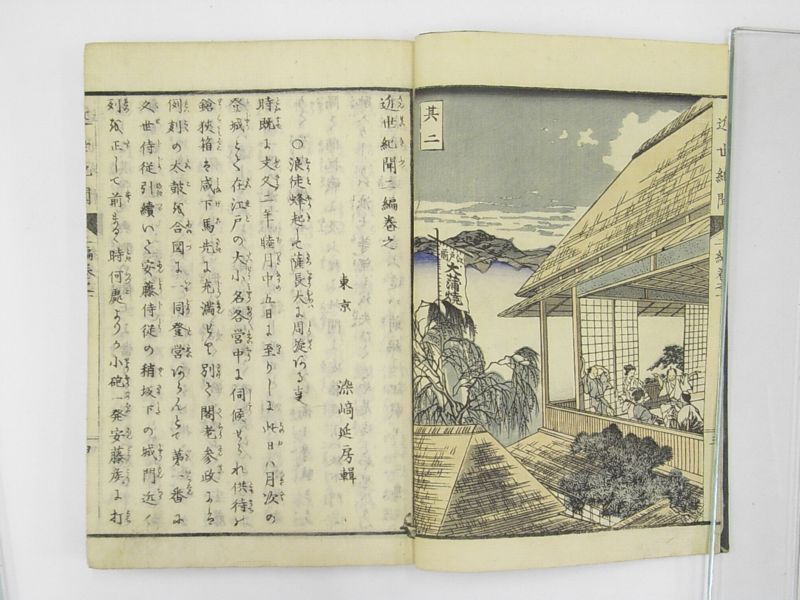 近世紀聞
二編巻之
其二
江戸前
大蒲焼
近世紀聞二編巻之
東京 染﨑延房輯
○浪徒蜂起して薩長大に周旋ある事
時既に文久二年睦月中五日に至りしに此日ハ月次の
登城とて在江戸の大小名各營中に伺候せられ供待の
鎗挟箱を咸下馬先に充満せり別て閣老参政にハ
例刻の太鼓を合図に一同登営あらんとて第一番に
久世侍従引續いて安藤侍従の稍坂下の城門近く
列を正して前まるゝ時何處よりか小砲一発安藤矦に打
近世紀聞
二編巻之